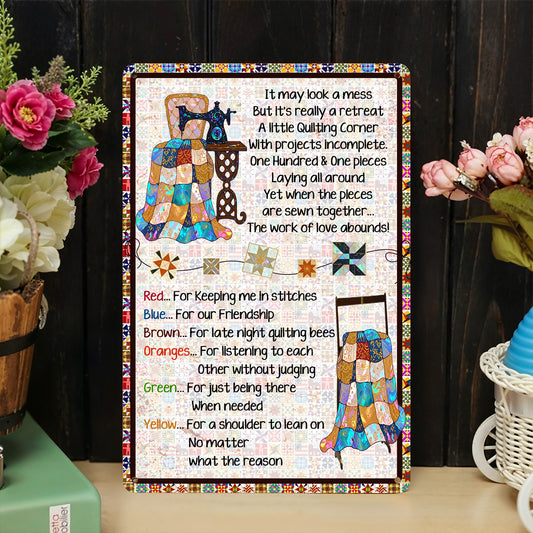 It may look a mess
But It's really a retreat
A little Quilting Corner
With projects incomplete.
One Hundred & One pieces
Laying all around
Yet when the pieces
are sewn together...
The work of love abounds!
Red... For Keeping me in stitches
Blue... For our Friendship
Brown... For late night quilting bees
Oranges... For listening to each
Other without judging
Green... For just being there
When needed
Yellow... For a shoulder to lean on
No matter
what the reason